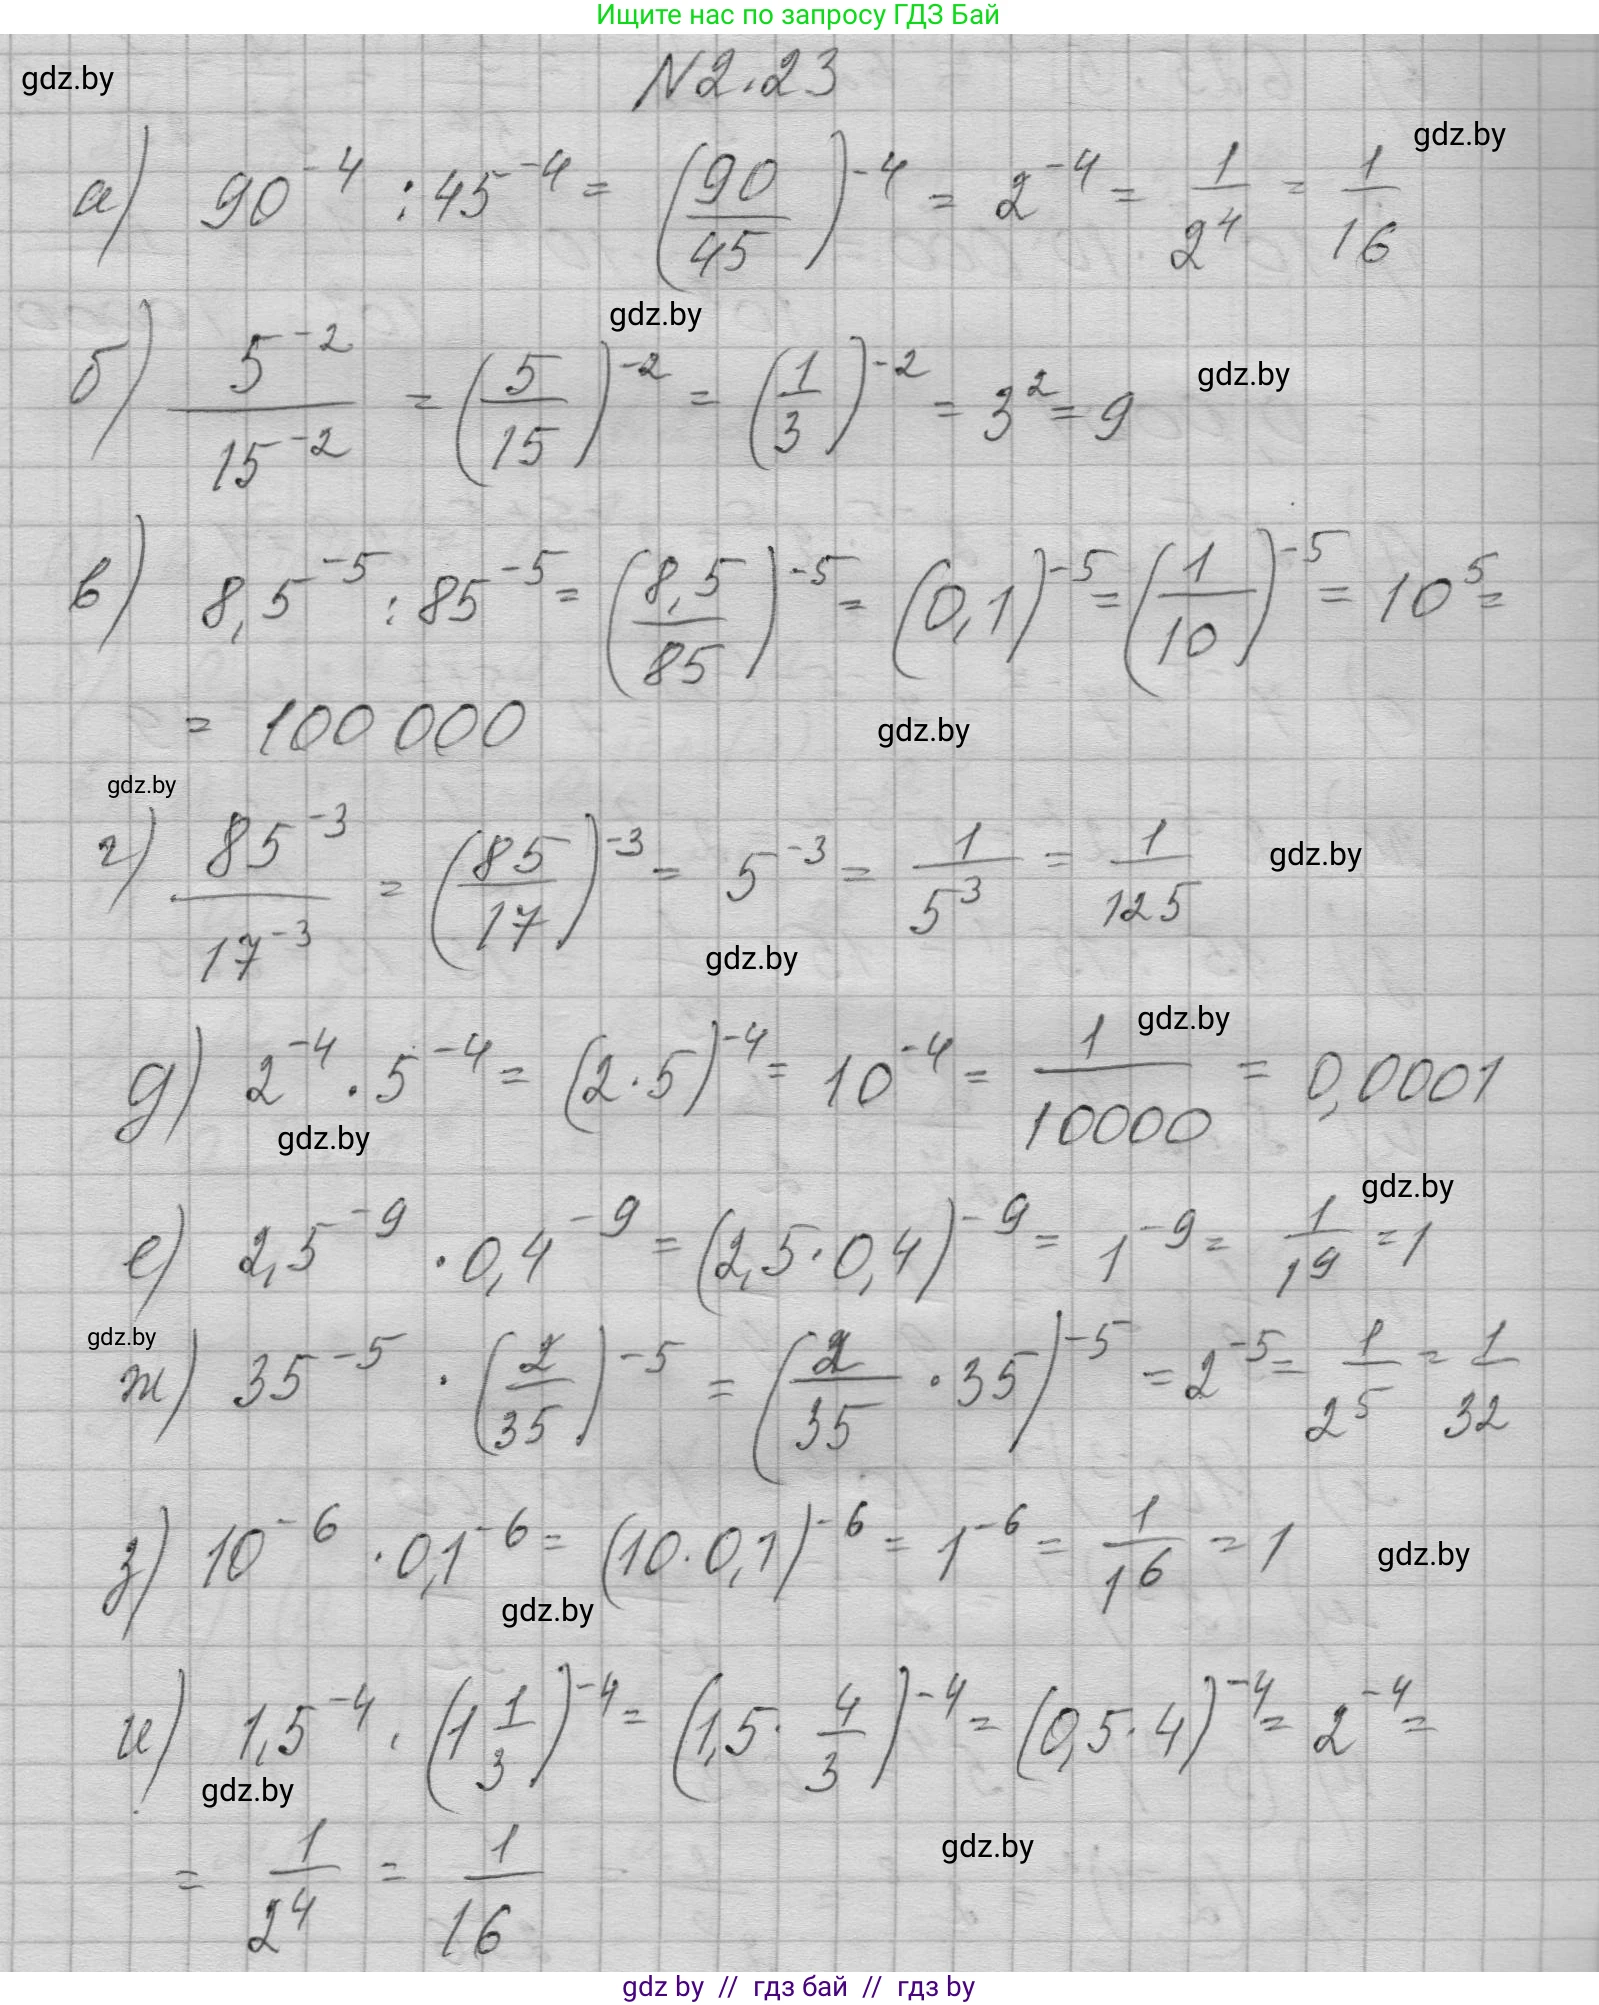 Ищите нас по запросу ГДЗ Бай
gdz.by
N2.23
gdz.by
а) 90^-4 : 45^-4 = (90/45)^-4 = 2^-4 = 1/2^4 = 1/16
gdz.by
б) 5^-2/15^-2 = (5/15)^-2 = (1/3)^-2 = 3^2 = 9
gdz.by
в) 8,5^-5 : 85^-5 = (8,5/85)^-5 = (0,1)^-5 = (1/10)^-5 = 10^5 =
= 100 000
gdz.by
gdz.by
г) 85^-3/17^-3 = (85/17)^-3 = 5^-3 = 1/5^3 = 1/125
gdz.by
gdz.by
gdz.by
д) 2^-4 · 5^-4 = (2·5)^-4 = 10^-4 = 1/10000 = 0,0001
gdz.by
gdz.by
е) 2,5^-9 · 0,4^-9 = (2,5·0,4)^-9 = 1^-9 = 1/1^9 = 1
gdz.by
ж) 35^-5 · (2/35)^-5 = (2/35 · 35)^-5 = 2^-5 = 1/2^5 = 1/32
з) 10^-6 · 0,1^-6 = (10·0,1)^-6 = 1^-6 = 1/1^6 = 1
gdz.by
gdz.by
и) 1,5^-4 · (1 1/3)^-4 = (1,5 · 4/3)^-4 = (0,5·4)^-4 = 2^-4 =
gdz.by
= 1/2^4 = 1/16
gdz.by
gdz by // гдз бай // гдз by